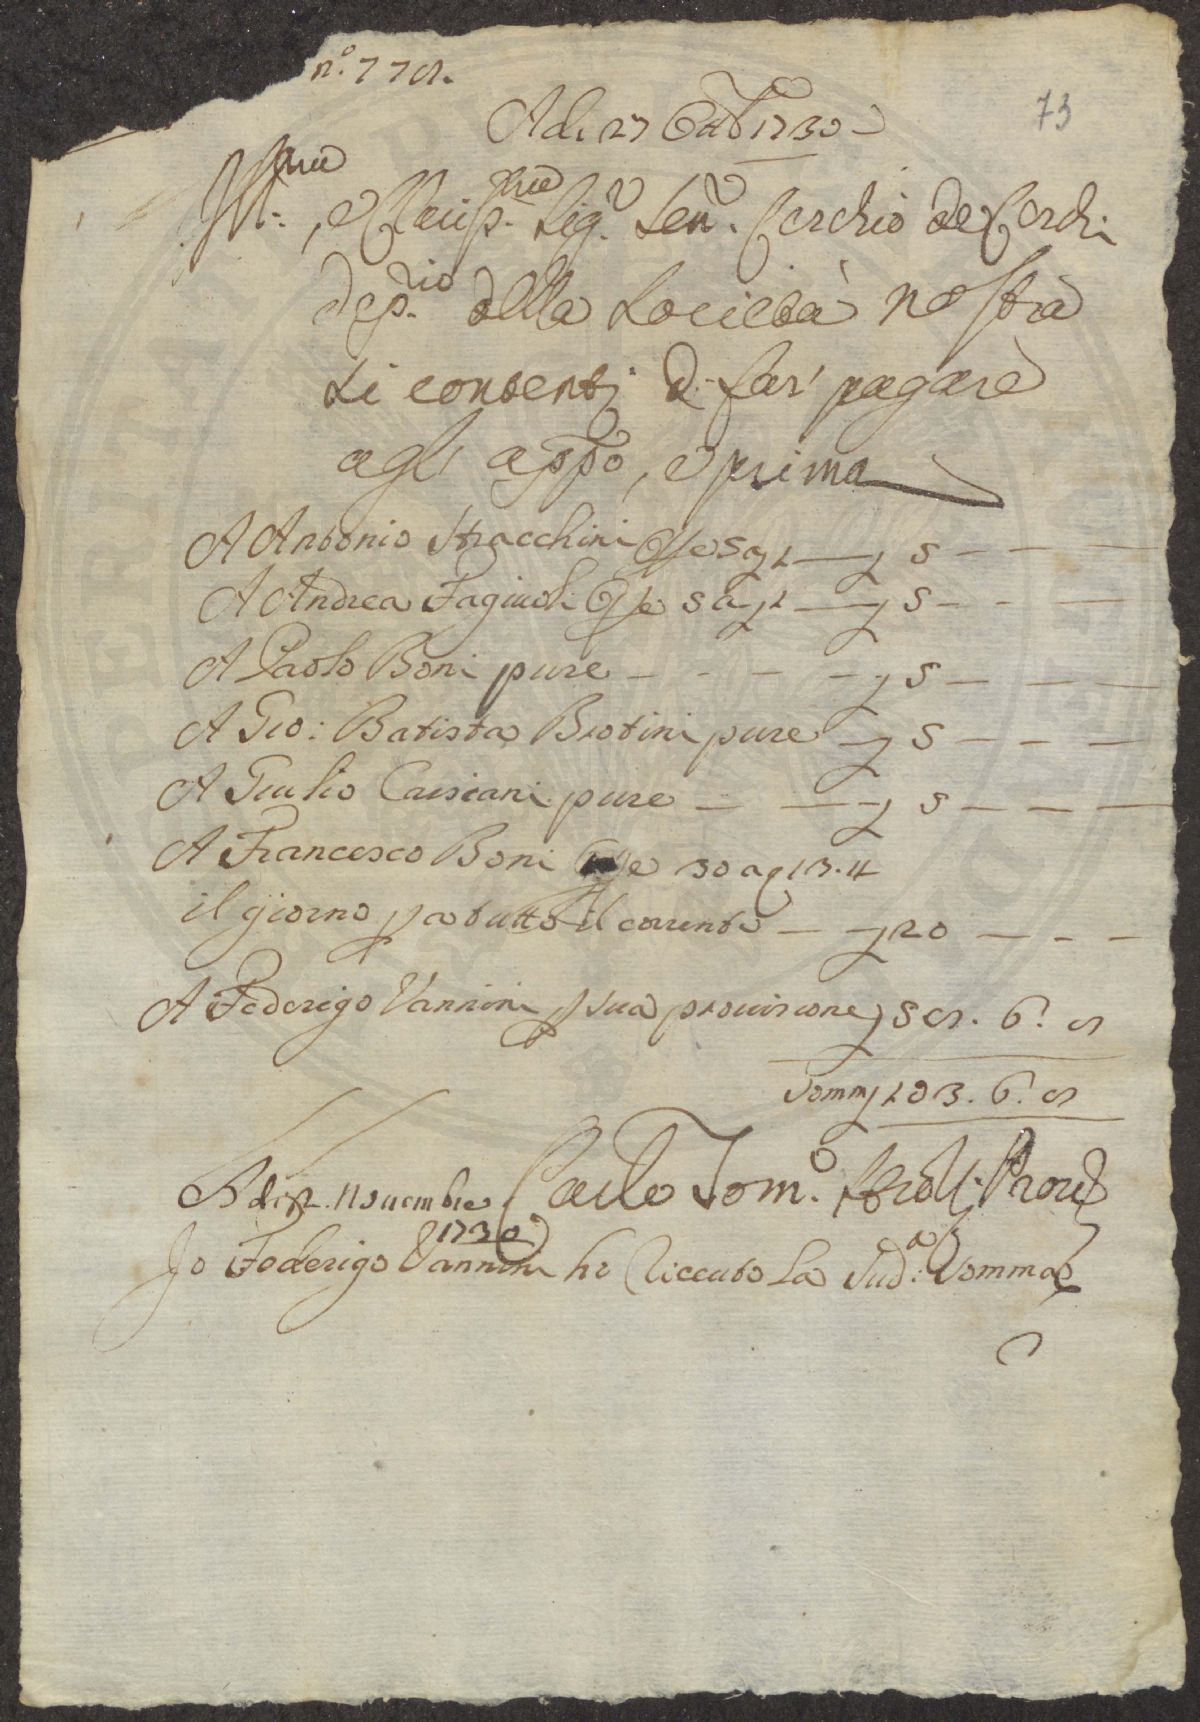 n.° 778.
73
Adi 27 Ottb 1730
Ill:mo, e Clariss.mo Sig.r Sen.r Cerchio de Cerchi
dep.rio della Società nostra
si contenti di far' pagare
agli appo, e prima
A Antonio Stracchini
A Andrea Fagiuoli
A Paolo Boni pure — — — — 5 — — —
A Gio: Batista Brotini pure — 5 — — —
A Giulio Casciani pure — — — 5 — — —
A Francesco Boni 30 a 13.4
il giorno p a tutto il corrente — 20 — — —
A Federigo Vannini p sua provisione 58. 6. 8
Somm 103. 6. 8
Adi Novembre Carlo Tom.o Prov
1730
Jo Federigo Vannini ho riceuto la Sud.a Somma